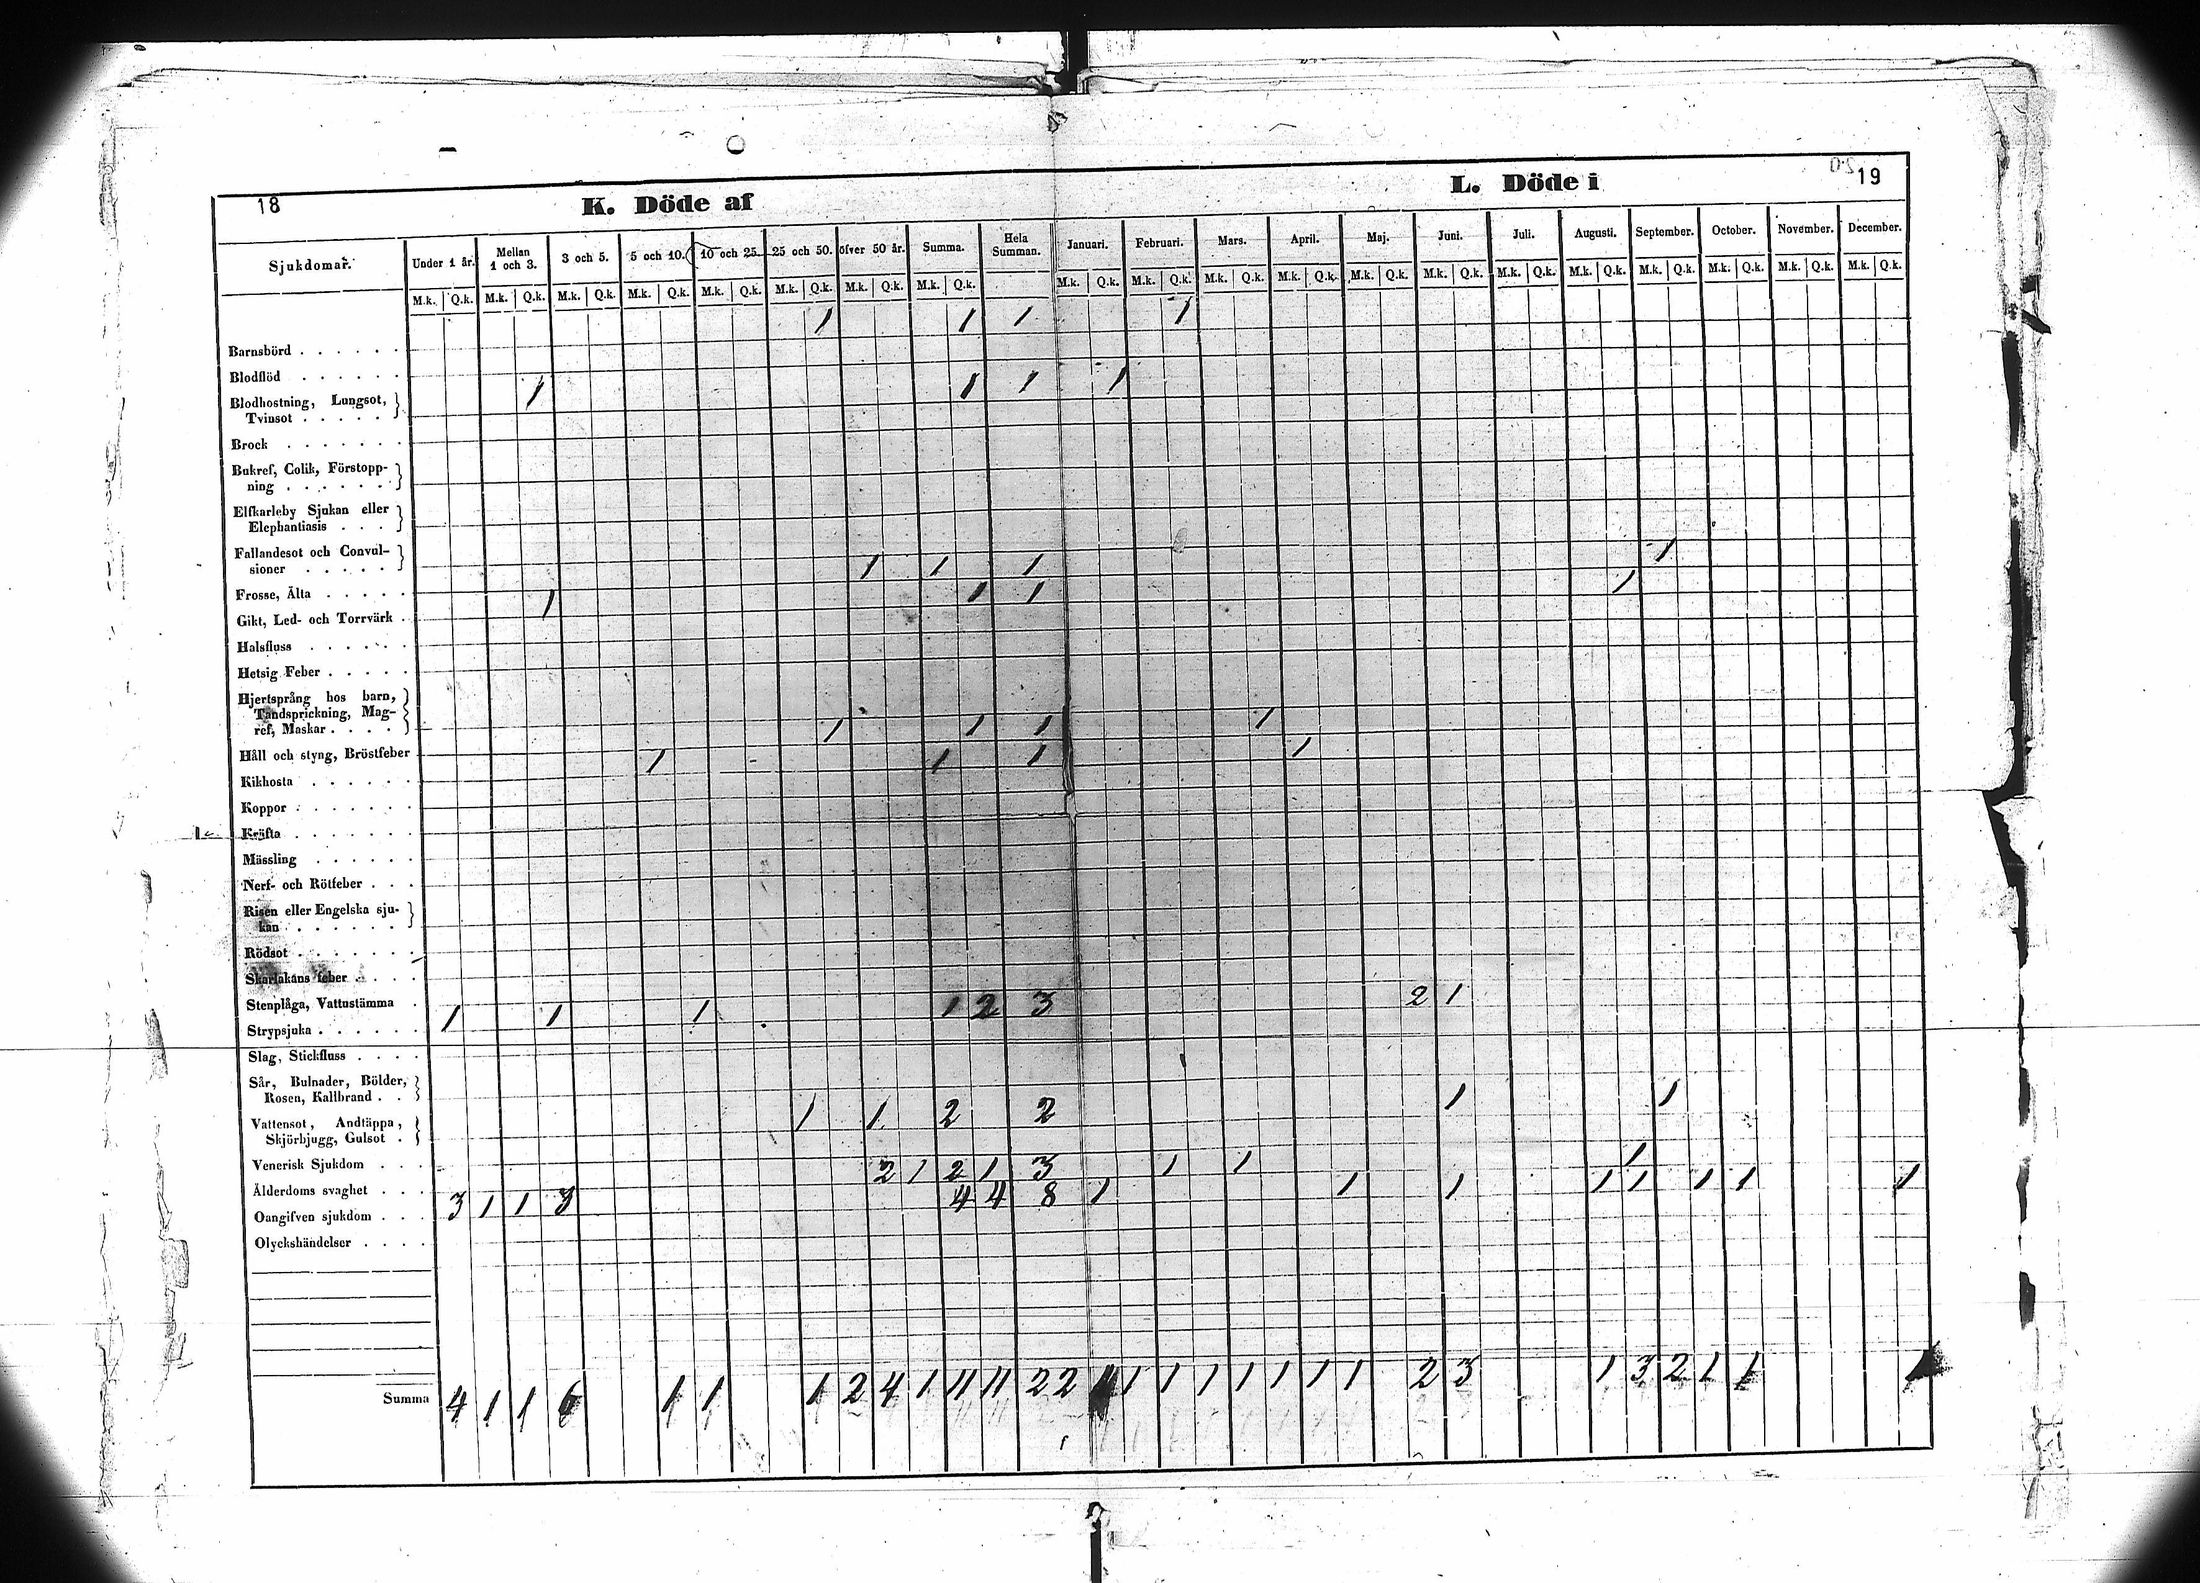 18
K. Döde af
L. Döde i
19
Sjukdomar.
Under 1 år. Mellan 1 och 3. 3 och 5. 5 och 10. 10 och 25. 25 och 50. öfver 50 år. Summa. Hela Summan. Januari. Februari. Mars. April. Maj. Juni. Juli. Augusti. September. October. November. December.
M.k. Q.k. M.k. Q.k. M.k. Q.k. M.k. Q.k. M.k. Q.k. M.k. Q.k. M.k. Q.k. M.k. Q.k. M.k. Q.k. M.k. Q.k. M.k. Q.k. M.k. Q.k. M.k. Q.k. M.k. Q.k. M.k. Q.k. M.k. Q.k. M.k. Q.k. M.k. Q.k. M.k. Q.k. M.k. Q.k.
1 1 1 1
Barnsbörd . . . . . .
Blodflöd . . . . . .
1 1 1 1
Blodhostning, Lungsot,
Tvinsot . . . . .
Brock . . . . . . .
Bukref, Colik, Förstopp-
ning . . . . . .
Elfkarleby Sjukan eller
Elephantiasis . . .
Fallandesot och Convul-
sioner . . . . .
1 1 1 1
Frosse, Älta . . . . .
1 1 1 1
Gikt, Led- och Torrvärk .
Halsfluss . . . . . .
Hetsig Feber . . . . .
Hjertsprång hos barn,
Tandsprickning, Mag-
ref, Maskar . . . .
1 1 1 1
Håll och styng, Bröstfeber
1 1 1 1
Kikhosta . . . . . .
Koppor . . . . . . .
Kräfta . . . . . . .
Mässling . . . . . .
Nerf- och Rötfeber . . .
Risen eller Engelska sju-
kan . . . . . .
Rödsot . . . . . . .
Skarlakans feber . . . .
Stenplåga, Vattustämma .
1 1 1 1 2 3 2 1
Strypsjuka . . . . . .
Slag, Stickfluss . . . .
Sår, Bulnader, Bölder,
Rosen, Kallbrand . .
1 1 2 2 1 1
Vattensot, Andtäppa,
Skjörbjugg, Gulsot .
Venerisk Sjukdom . . .
2 1 2 1 3 1 1 1
Ålderdoms svaghet . . .
3 1 1 3 4 4 8 1 1 1 1 1 1 1 1
Oangifven sjukdom . . .
Olyckshändelser . . . .
Summa 4 1 1 6 1 1 1 2 4 1 11 11 22 1 1 1 1 1 1 1 2 3 1 3 2 1 1 1